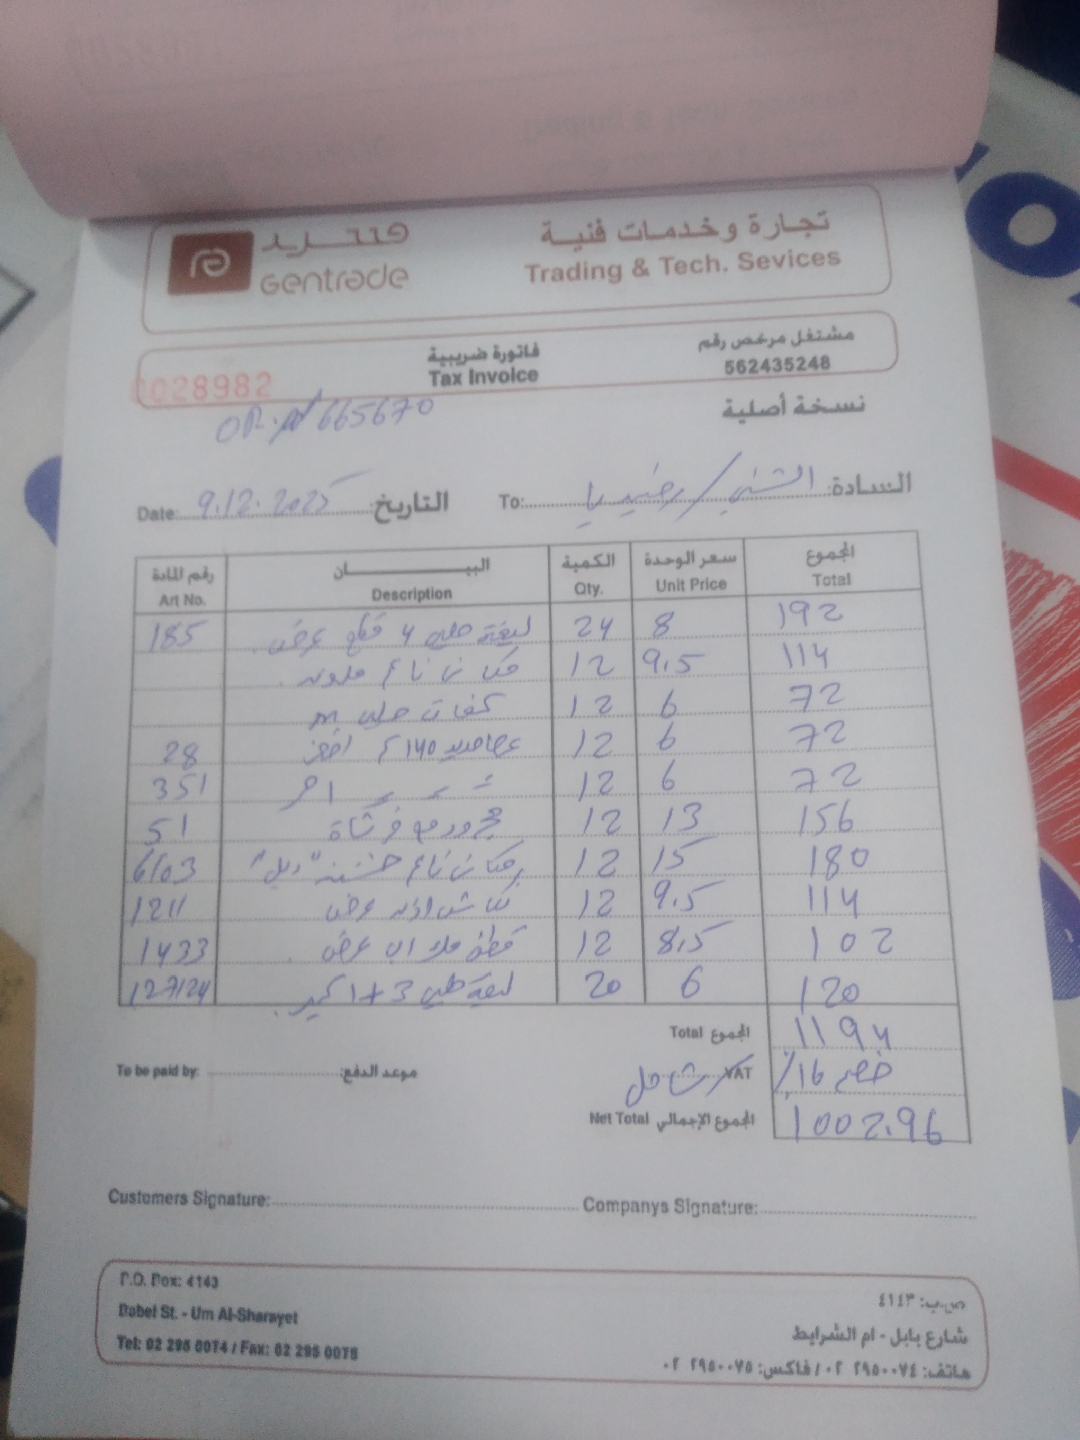 جنتريد
Gentrade
تجارة وخدمات فنية
Trading & Tech. Sevices
فاتورة ضريبية
Tax Invoice
مشتغل مرخص رقم
562435248
028982
OR. 665670
نسخة أصلية
Date: 9.12.2025 التاريخ:
To: السادة:
رقم المادة البيــان الكمية سعر الوحدة المجموع
Art No. Description Qty. Unit Price Total
185 ليفة جلي 4 قطع عرض 24 8 192
ناعم ملونه 12 9.5 114
كفات جلي m 12 6 72
28 140 12 6 72
351 احمر 12 6 72
51 مجرود مع فرشاة 12 13 156
6103 خشنه 12 15 180
1211 عرض 12 9.5 114
1433 عرض 12 8.5 102
127124 ليفة جلي 3+1 كبير 20 6 120
Total المجموع 1194
To be paid by: موعد الدفع:
VAT شامل خصم 16%
Net Total المجموع الإجمالي 1002.96
Customers Signature: Companys Signature:
P.O. Box: 4143
Babel St. - Um Al-Sharayet
Tel: 02 295 0074 / Fax: 02 295 0075
ص.ب: ٤١٤٣
شارع بابل - ام الشرايط
هاتف: ٢٩٥٠٠٧٤ ٠٢ / فاكس: ٢٩٥٠٠٧٥ ٠٢